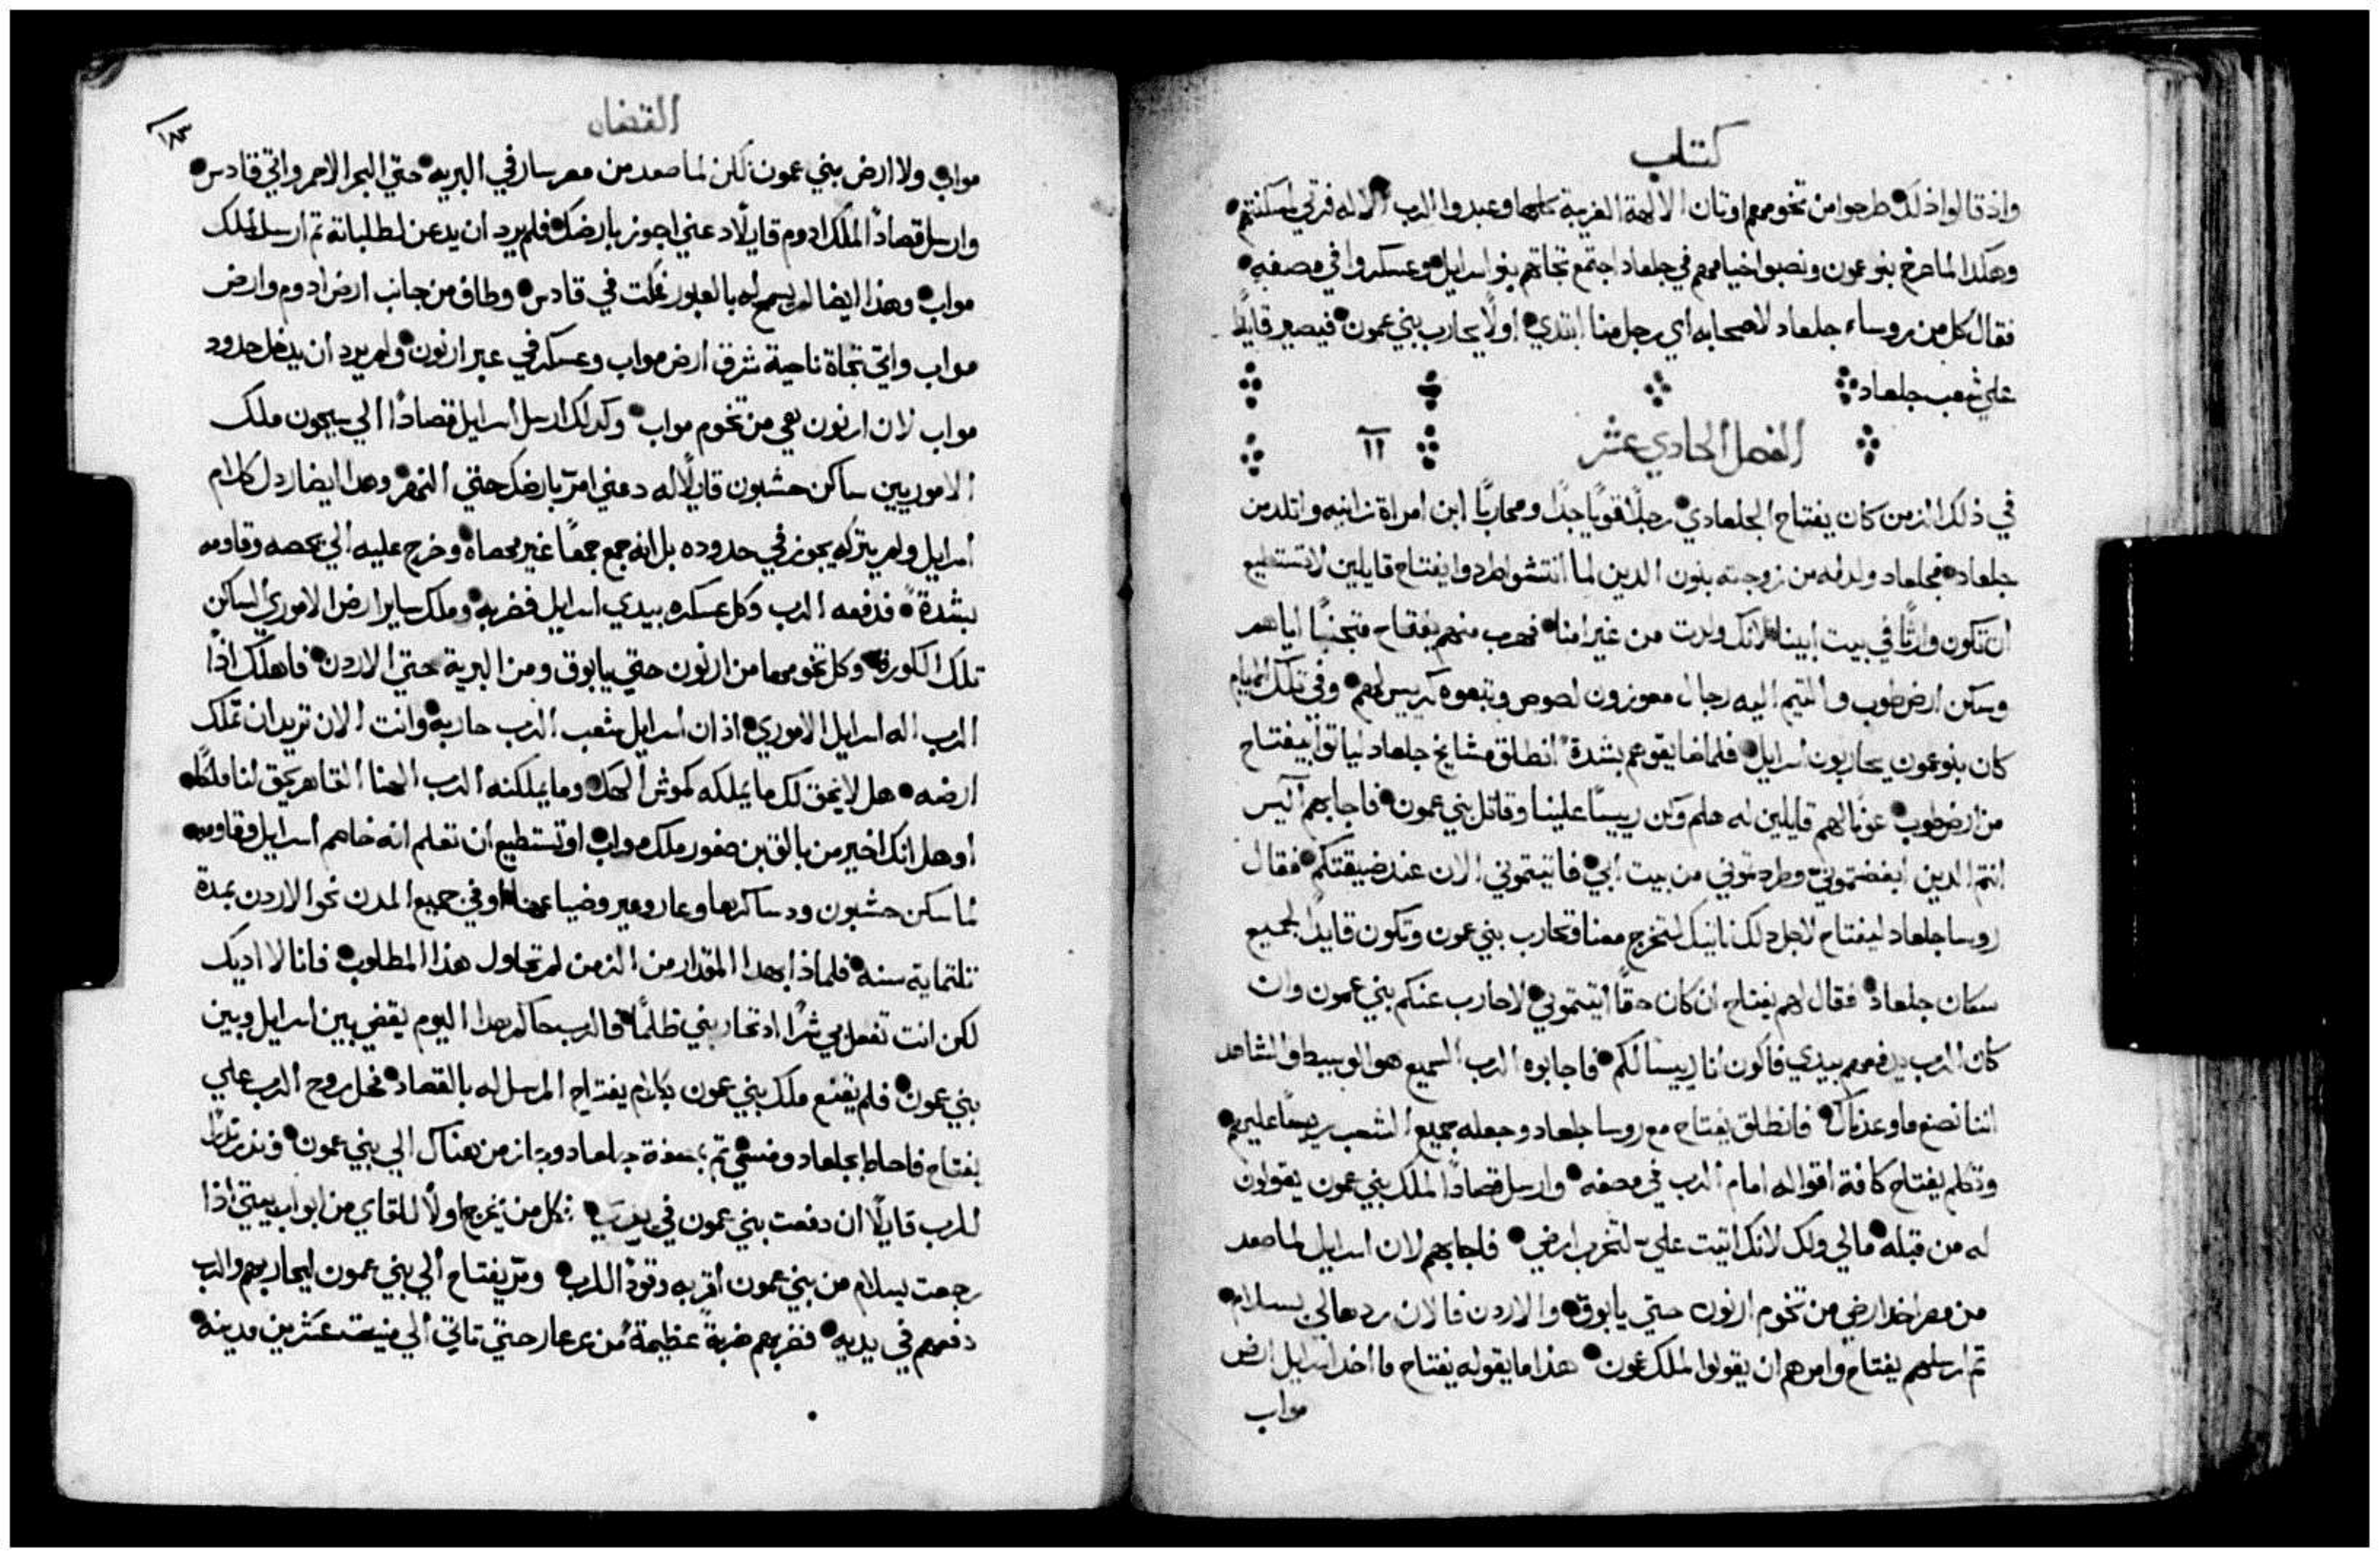 كتاب
واذ قالوا ذلك طرحوا من تخومهم اوتان الالهة الغريبة كلها وعبدوا الرب الاله فرتي لمسكنتهم
وهكدا لما صرخ بنو عمون ونصبوا خيامهم في جلعاد اجتمع تجاهم بنو اسرايل وعسكروا في مصفه
فقال كل من روساء جلعاد لاصحابه اي رجل منا ابتدي اولًا يحارب بني عمون فيصير قايدًا
علي شعب جلعاد
الفصل الحادي عشر ١١
في ذلك الزمن كان يفتاح الجلعادي رجلًا قويًا جدًا ومحاربًا ابن امراة زانيه واتلد من
جلعاد فجلعاد ولد له من زوجته بنون الدين لما انتشوا طردوا يفتاح قايلين لا تستطيع
ان تكون وارثًا في بيت ابينا لانك ولدت من غير امنا فهرب منهم يفتاح متجنبًا اياهم
وسكن ارض طوب والتيم اليه رجال معوزون لصوص وتبعوه كرييس لهم وفي تلك الايام
كان بنو عمون يحاربون اسرايل فلما ضايقوهم بشدة انطلق مشايخ جلعاد لياتوا بيفتاح
من ارض طوب عونًا لهم قايلين له هلم وكن رييسًا علينا وقاتل بني عمون فاجابهم اليس
انتم الدين ابغضتموني وطردتموني من بيت ابي فاتيتموني الان عند ضيقتكم فقال
روسا جلعاد ليفتاح لاجل دلك ناتيك لتخرج معنا وتحارب بني عمون وتكون قايدًا لجميع
سكان جلعاد فقال لهم يفتاح ان كان حقًا اتيتموني لاحارب عنكم بني عمون وان
كان الرب يدفعهم بيدي فاكون انا رييسًا لكم فاجابوه الرب السميع هو الوسيط والشاهد
اننا نصنع ما وعدناك فانطلق يفتاح مع روسا جلعاد وجعله جميع الشعب رييسًا عليهم
وتكلم يفتاح كافة اقواله امام الرب في مصفه وارسل قصادًا لملك بني عمون يقولون
له من قبله مالي ولك لانك اتيت علي لتخرب ارضي فاجابهم لان اسرايل لما صعد
من مصر اخد ارضي من تخوم ارنون حتي يابوق والاردن فالان ردها لي بسلام
تم ارسلهم يفتاح وامرهم ان يقولوا لملك عمون هذا ما يقوله يفتاح ما اخد اسرايل ارض
مواب
القضاه
١٨٣
مواب ولا ارض بني عمون لكن لما صعد من مصر سار في البريه حتي البحر الاحمر واتي قادس
وارسل قصادًا لملك ادوم قايلًا دعني اجوز بارضك فلم يرد ان يدعن لطلباته تم ارسل لملك
مواب وهذا ايضا لم يسمح له بالعبور فمكت في قادس وطاف من جانب ارض ادوم وارض
مواب واتي تجاة ناحية شرق ارض مواب وعسكر في عبر ارنون ولم يرد ان يدخل حدود
مواب لان ارنون هي من تخوم مواب وكدلك ارسل اسرايل قصادًا الي سيحون ملك
الاموريين ساكن حشبون قايلًا له دعني امرّ بارضك حتي النهر وهدا ايضا ردل كلام
اسرايل ولم يتركه يجوز في حدوده بل انه جمع جمعًا غير محصاه وخرج عليه الي يحصه وقاومه
بشدة فدفعه الرب وكل عسكره بيدي اسرايل فضربه وملك ساير ارض الاموري الساكن
تلك الكورة وكل تخومها من ارنون حتي يابوق ومن البرية حتي الاردن فاهلك اذًا
الرب اله اسرايل الاموري اذ ان اسرايل شعب الرب حاربه وانت الان تريد ان تملك
ارضه هل لا يحق لك ما يملكه كموش الهك وما يملكنه الرب الهنا القاهر يحق لنا ملكًا
او هل انك اخير من بالق بن صفور ملك مواب او تستطيع ان تعلم انه خاصم اسرايل وقاومه
لما سكن حشبون ودساكرها وعاروعير وضياعها او في جميع المدن نحو الاردن بمدة
تلتماية سنه فلماذا بهدا المقدار من الزمن لم تحاول هذا المطلوب فانا لا اديك
لكن انت تفعل بي شرًا اد تحاربني ظلمًا فالرب حاكم هدا اليوم يقضي بين اسرايل وبين
بني عمون فلم يقنع ملك بني عمون بكلام يفتاح المرسل له بالقصاد فحل روح الرب علي
يفتاح فاحاط بجلعاد ومنسي تم بمصفة جلعاد وجاز من هناك الي بني عمون وندر ندرًا
للرب قايلًا ان دفعت بني عمون في يدي فكل من يخرج اولًا للقاي من ابواب بيتي اذا
رجعت بسلام من بني عمون اقربه وقودًا للرب ومرّ يفتاح الي بني عمون ليحاربهم والرب
دفعهم في يديه فضربهم ضربة عظيمة من عرعار حتي تاتي الي منيت عشرين مدينه